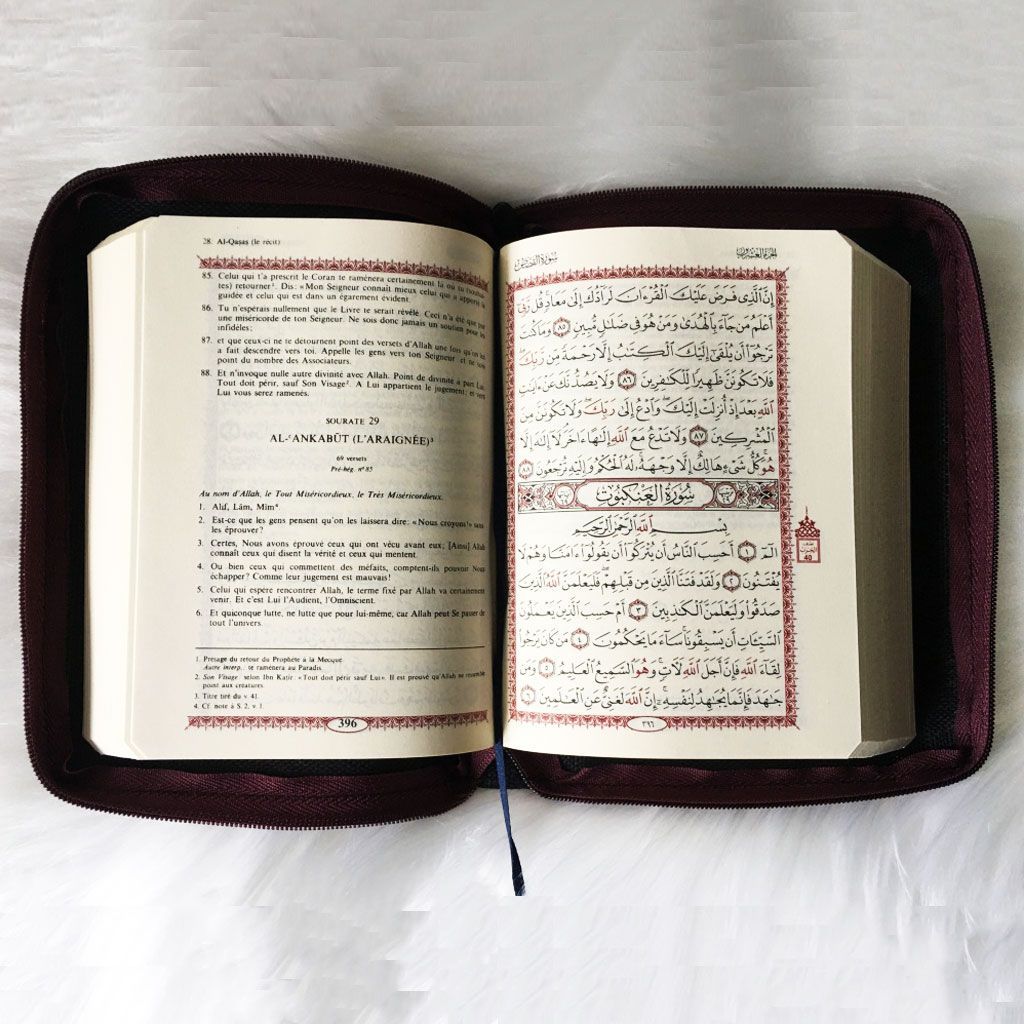 28. Al-Qaṣaṣ (le récit)
85. Celui qui t'a prescrit le Coran te ramènera certainement là où tu (souhai-
tes) retourner¹. Dis: «Mon Seigneur connaît mieux celui qui a apporté la
guidée et celui qui est dans un égarement évident.
86. Tu n'espérais nullement que le Livre te serait révélé. Ceci n'a été que par
une miséricorde de ton Seigneur. Ne sois donc jamais un soutien pour les
infidèles;
87. et que ceux-ci ne te détournent point des versets d'Allah une fois qu'on les
a fait descendre vers toi. Appelle les gens vers ton Seigneur et ne sois
point du nombre des Associateurs.
88. Et n'invoque nulle autre divinité avec Allah. Point de divinité à part Lui.
Tout doit périr, sauf Son Visage². A Lui appartient le jugement; et vers
Lui vous serez ramenés.
SOURATE 29
AL-ʿANKABŪT (L'ARAIGNÉE)³
69 versets
Pré-hég. n° 85
Au nom d'Allah, le Tout Miséricordieux, le Très Miséricordieux.
1. Alif, Lām, Mīm⁴.
2. Est-ce que les gens pensent qu'on les laissera dire: «Nous croyons!» sans
les éprouver?
3. Certes, Nous avons éprouvé ceux qui ont vécu avant eux; [Ainsi] Allah
connaît ceux qui disent la vérité et ceux qui mentent.
4. Ou bien ceux qui commettent des méfaits, comptent-ils pouvoir Nous
échapper? Comme leur jugement est mauvais!
5. Celui qui espère rencontrer Allah, le terme fixé par Allah va certainement
venir. Et c'est Lui l'Audient, l'Omniscient.
6. Et quiconque lutte, ne lutte que pour lui-même, car Allah peut Se passer de
tout l'univers.
1. Présage du retour du Prophète à la Mecque.
Autre interp.: te ramènera au Paradis.
2. Son Visage: selon Ibn Kaṯir: «Tout doit périr sauf Lui». Il est prouvé qu'Allah ne ressemble
point aux créatures.
3. Titre tiré du v. 41.
4. Cf. note à S. 2, v. 1.
396
الجزء العشرون
سورة القصص
إِنَّ ٱلَّذِى فَرَضَ عَلَيْكَ ٱلْقُرْءَانَ لَرَآدُّكَ إِلَىٰ مَعَادٍ قُل رَّبِّىٓ
أَعْلَمُ مَن جَآءَ بِٱلْهُدَىٰ وَمَنْ هُوَ فِى ضَلَٰلٍ مُّبِينٍ ٨٥ وَمَا كُنتَ
تَرْجُوٓا۟ أَن يُلْقَىٰٓ إِلَيْكَ ٱلْكِتَٰبُ إِلَّا رَحْمَةً مِّن رَّبِّكَ
فَلَا تَكُونَنَّ ظَهِيرًا لِّلْكَٰفِرِينَ ٨٦ وَلَا يَصُدُّنَّكَ عَنْ ءَايَٰتِ
ٱللَّهِ بَعْدَ إِذْ أُنزِلَتْ إِلَيْكَ وَٱدْعُ إِلَىٰ رَبِّكَ وَلَا تَكُونَنَّ مِنَ
ٱلْمُشْرِكِينَ ٨٧ وَلَا تَدْعُ مَعَ ٱللَّهِ إِلَٰهًا ءَاخَرَ لَآ إِلَٰهَ إِلَّا
هُوَ كُلُّ شَىْءٍ هَالِكٌ إِلَّا وَجْهَهُۥ لَهُ ٱلْحُكْمُ وَإِلَيْهِ تُرْجَعُونَ ٨٨
سُورَةُ العَنكَبُوتِ
بِسْمِ ٱللَّهِ ٱلرَّحْمَٰنِ ٱلرَّحِيمِ
الٓمٓ ١ أَحَسِبَ ٱلنَّاسُ أَن يُتْرَكُوٓا۟ أَن يَقُولُوٓا۟ ءَامَنَّا وَهُمْ لَا
يُفْتَنُونَ ٢ وَلَقَدْ فَتَنَّا ٱلَّذِينَ مِن قَبْلِهِمْ فَلَيَعْلَمَنَّ ٱللَّهُ ٱلَّذِينَ
صَدَقُوا۟ وَلَيَعْلَمَنَّ ٱلْكَٰذِبِينَ ٣ أَمْ حَسِبَ ٱلَّذِينَ يَعْمَلُونَ
ٱلسَّيِّـَٔاتِ أَن يَسْبِقُونَا سَآءَ مَا يَحْكُمُونَ ٤ مَن كَانَ يَرْجُوا۟
لِقَآءَ ٱللَّهِ فَإِنَّ أَجَلَ ٱللَّهِ لَءَاتٍ وَهُوَ ٱلسَّمِيعُ ٱلْعَلِيمُ ٥ وَمَن
جَٰهَدَ فَإِنَّمَا يُجَٰهِدُ لِنَفْسِهِۦٓ إِنَّ ٱللَّهَ لَغَنِىٌّ عَنِ ٱلْعَٰلَمِينَ ٦
40
٣٩٦